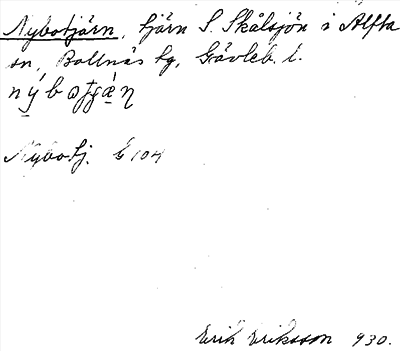 Nybotjärn, tjärn S. Skålsjön i Alfta
sn, Bollnäs tg, Gävleb. l.
Nybotj. G 104
Erik Eriksson 930.